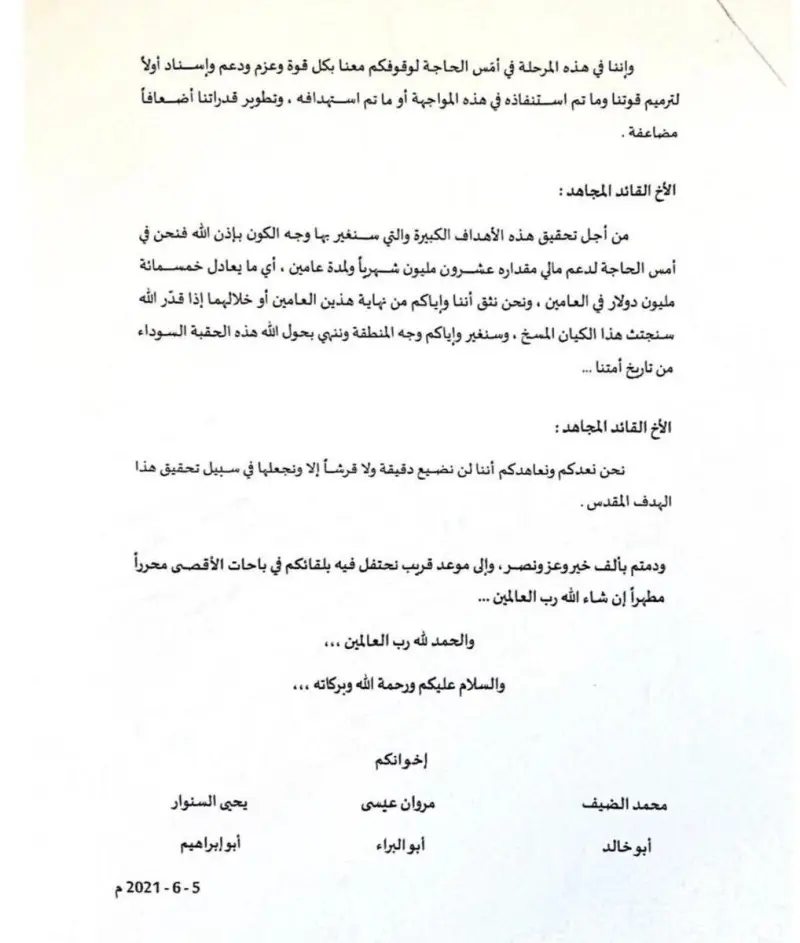 وإننا في هذه المرحلة في أمّس الحاجة لوقوفكم معنا بكل قوة وعزم ودعم وإسناد أولاً
لترميم قوتنا وما تم استنفاذه في هذه المواجهة أو ما تم استهدافه ، وتطوير قدراتنا أضعافاً
مضاعفة .
الأخ القائد المجاهد :
من أجل تحقيق هذه الأهداف الكبيرة والتي سنغير بها وجه الكون بإذن الله فنحن في
أمس الحاجة لدعم مالي مقداره عشرون مليون شهرياً ولمدة عامين ، أي ما يعادل خمسمائة
مليون دولار في العامين ، ونحن نثق أننا وإياكم من نهاية هذين العامين أو خلالهما إذا قدّر الله
سنجتث هذا الكيان المسخ ، وسنغير وإياكم وجه المنطقة وننهي بحول الله هذه الحقبة السوداء
من تاريخ أمتنا ...
الأخ القائد المجاهد :
نحن نعدكم ونعاهدكم أننا لن نضيع دقيقة ولا قرشاً إلا ونجعلها في سبيل تحقيق هذا
الهدف المقدس .
ودمتم بألف خير وعز ونصر ، وإلى موعد قريب نحتفل فيه بلقائكم في باحات الأقصى محرراً
مطهراً إن شاء الله رب العالمين ...
والحمد لله رب العالمين ،،،
والسلام عليكم ورحمة الله وبركاته ،،،
إخوانكم
محمد الضيف مروان عيسى يحيى السنوار
أبو خالد أبو البراء أبو إبراهيم
5 - 6 - 2021 م